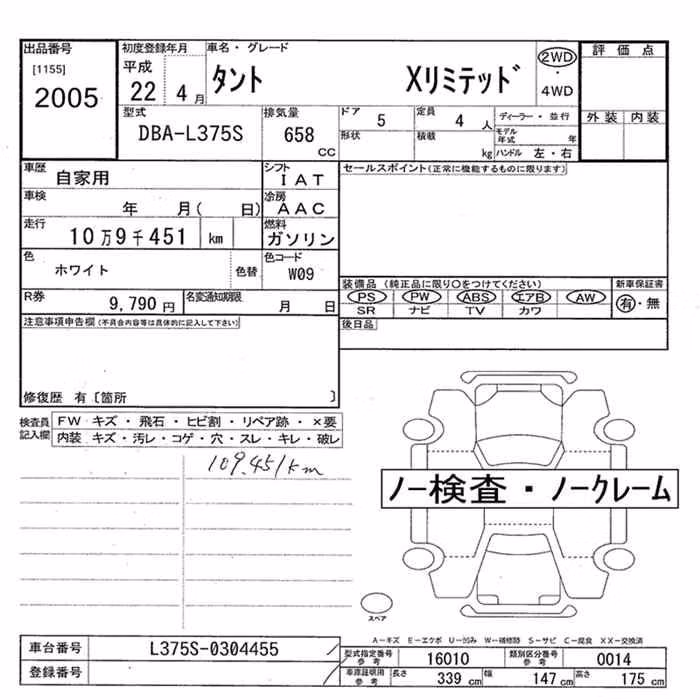 出品番号
[1155]
2005
初度登録年月
平成
22
4 月
車名・グレード
タント Xリミテッド
2WD
・
4WD
評価点
外装 内装
型式
DBA-L375S
排気量
658
CC
ドア
5
定員
4 人
ディーラー・並行
形状
積載
kg
モデル年式
年
ハンドル 左・右
車歴
自家用
シフト
IAT
車検
年 月( 日)
冷房
AAC
走行
10万9千451 km
燃料
ガソリン
色
ホワイト
色替
色コード
W09
R券
9,790 円
名変通知期限
月 日
セールスポイント(正常に機能するものに限ります)
装備品(純正品に限り○をつけてください)
新車保証書
PS PW ABS エアB AW
有・無
SR ナビ TV カワ
後日品
注意事項申告欄(不具合内容等は具体的に記入して下さい)
修復歴 有〔箇所 〕
検査員
記入欄
FW キズ・飛石・ヒビ割・リペア跡・×要
内装 キズ・汚レ・コゲ・穴・スレ・キレ・破レ
109.451km
ノー検査・ノークレーム
スペア
A-キズ E-エクボ U-凹み W-補修跡 S-サビ C-腐食 XX-交換済
車台番号
L375S-0304455
登録番号
型式指定番号
参考
16010
類別区分番号
参考
0014
車庫証明用
参考
長さ
339 cm
幅
147 cm
高さ
175 cm